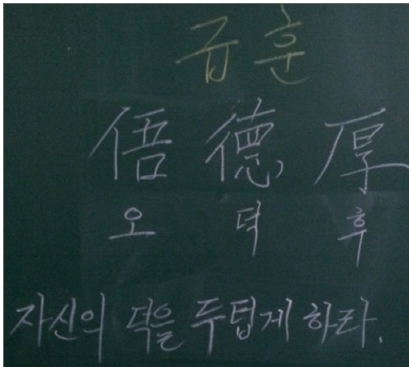 급훈
俉德厚
오덕후
자신의 덕을 두텁게 하라.